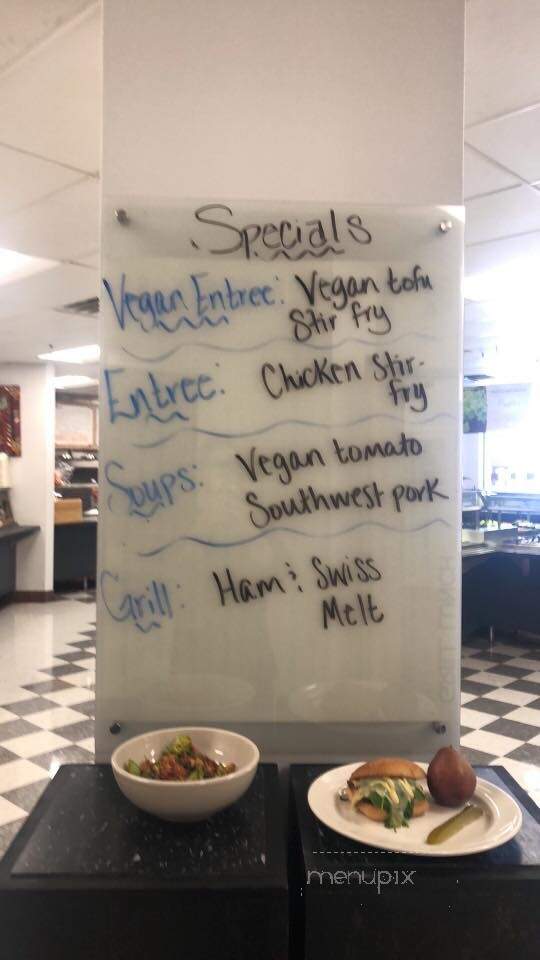 Specials
Vegan Entree: Vegan tofu
Stir fry
Entree: Chicken Stir-
fry
Soups: Vegan tomato
Southwest pork
Grill: Ham & Swiss
Melt
menupix